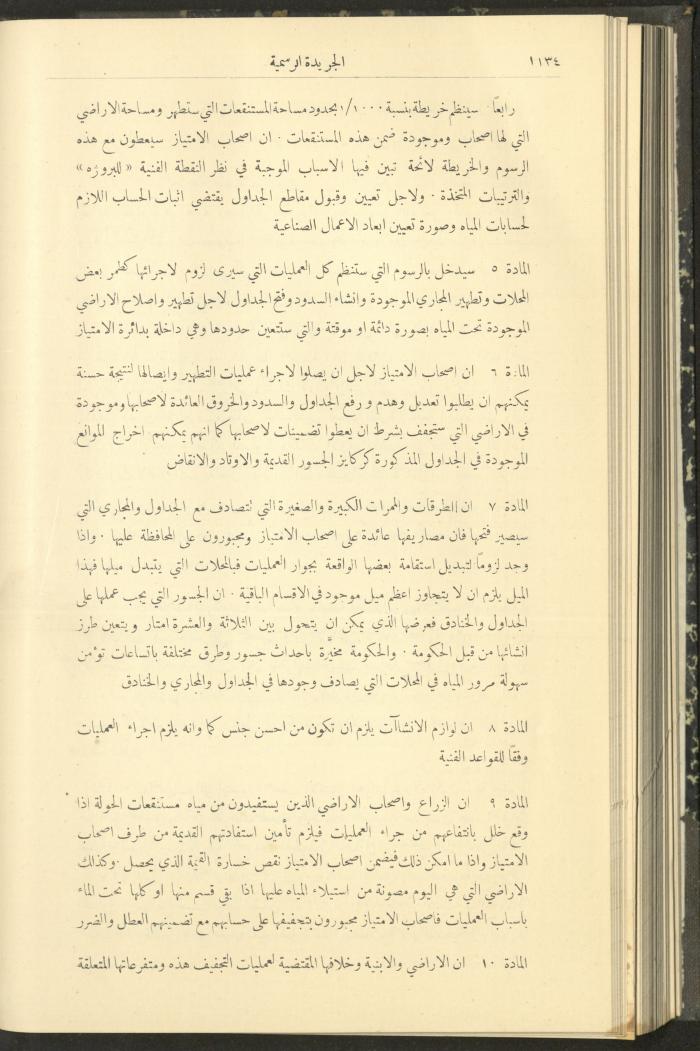 ١١٣٤
الجريدة الرسمية
رابعاً سينظم خريطة بنسبة ١/١٠٠٠ بحدود مساحة المستنقعات التي ستطهر ومساحة الاراضي
التي لها اصحاب وموجودة ضمن هذه المستنقعات . ان اصحاب الامتياز سيعطون مع هذه
الرسوم والخريطة لائحة تبين فيها الاسباب الموجبة في نظر النقطة الفنية « للبروژه »
والترتيبات المتخذة . ولاجل تعيين وقبول مقاطع الجداول يقتضي اثبات الحساب اللازم
لحسابات المياه وصورة تعيين ابعاد الاعمال الصناعية
المادة ٥ سيدخل بالرسوم التي ستنظم كل العمليات التي سيرى لزوم لاجرائها كطمر بعض
المحلات وتطهير المجاري الموجودة وانشاء السدود وفتح الجداول لاجل تطهير واصلاح الاراضي
الموجودة تحت المياه بصورة دائمة او موقتة والتي ستتعين حدودها وهي داخلة بدائرة الامتياز
المادة ٦ ان اصحاب الامتياز لاجل ان يصلوا لاجراء عمليات التطهير وايصالها لنتيجة حسنة
يمكنهم ان يطلبوا تعديل وهدم و رفع الجداول والسدود والخروق العائدة لاصحابها وموجودة
في الاراضي التي ستجفف بشرط ان يعطوا تضمينات لاصحابها كما انهم يمكنهم اخراج الموانع
الموجودة في الجداول المذكورة كركايز الجسور القديمة والاوتاد والانقاض
المادة ٧ ان الطرقات والممرات الكبيرة والصغيرة التي تتصادف مع الجداول والمجاري التي
سيصير فتحها فان مصاريفها عائدة على اصحاب الامتياز ومجبورون على المحافظة عليها . واذا
وجد لزوماً لتبديل استقامة بعضها الواقعة بجوار العمليات فبالمحلات التي يتبدل ميلها فهذا
الميل يلزم ان لا يتجاوز اعظم ميل موجود في الاقسام الباقية . ان الجسور التي يجب عملها على
الجداول والخنادق فعرضها الذي يمكن ان يتحول بين الثلاثة والعشرة امتار ويتعين طرز
انشائها من قبل الحكومة . والحكومة مخيَّرة باحداث جسور وطرق مختلفة باتساعات تؤمن
سهولة مرور المياه في المحلات التي يصادف وجودها في الجداول والمجاري والخنادق
المادة ٨ ان لوازم الانشاآت يلزم ان تكون من احسن جنس كما وانه يلزم اجراء العمليات
وفقاً للقواعد الفنية
المادة ٩ ان الزراع واصحاب الاراضي الذين يستفيدون من مياه مستنقعات الحولة اذا
وقع خلل بانتفاعهم من جراء العمليات فيلزم تأمين استفادتهم القديمة من طرف اصحاب
الامتياز واذا ما امكن ذلك فيضمن اصحاب الامتياز نقص خسارة القيمة الذي يحصل . وكذلك
الاراضي التي هي اليوم مصونة من استيلاء المياه عليها اذا بقي قسم منها او كلها تحت الماء
باسباب العمليات فاصحاب الامتياز مجبورون بتجفيفها على حسابهم مع تضمينهم العطل والضرر
المادة ١٠ ان الاراضي والابنية وخلافها المقتضية لعمليات التجفيف هذه ومتفرعاتها المتعلقة